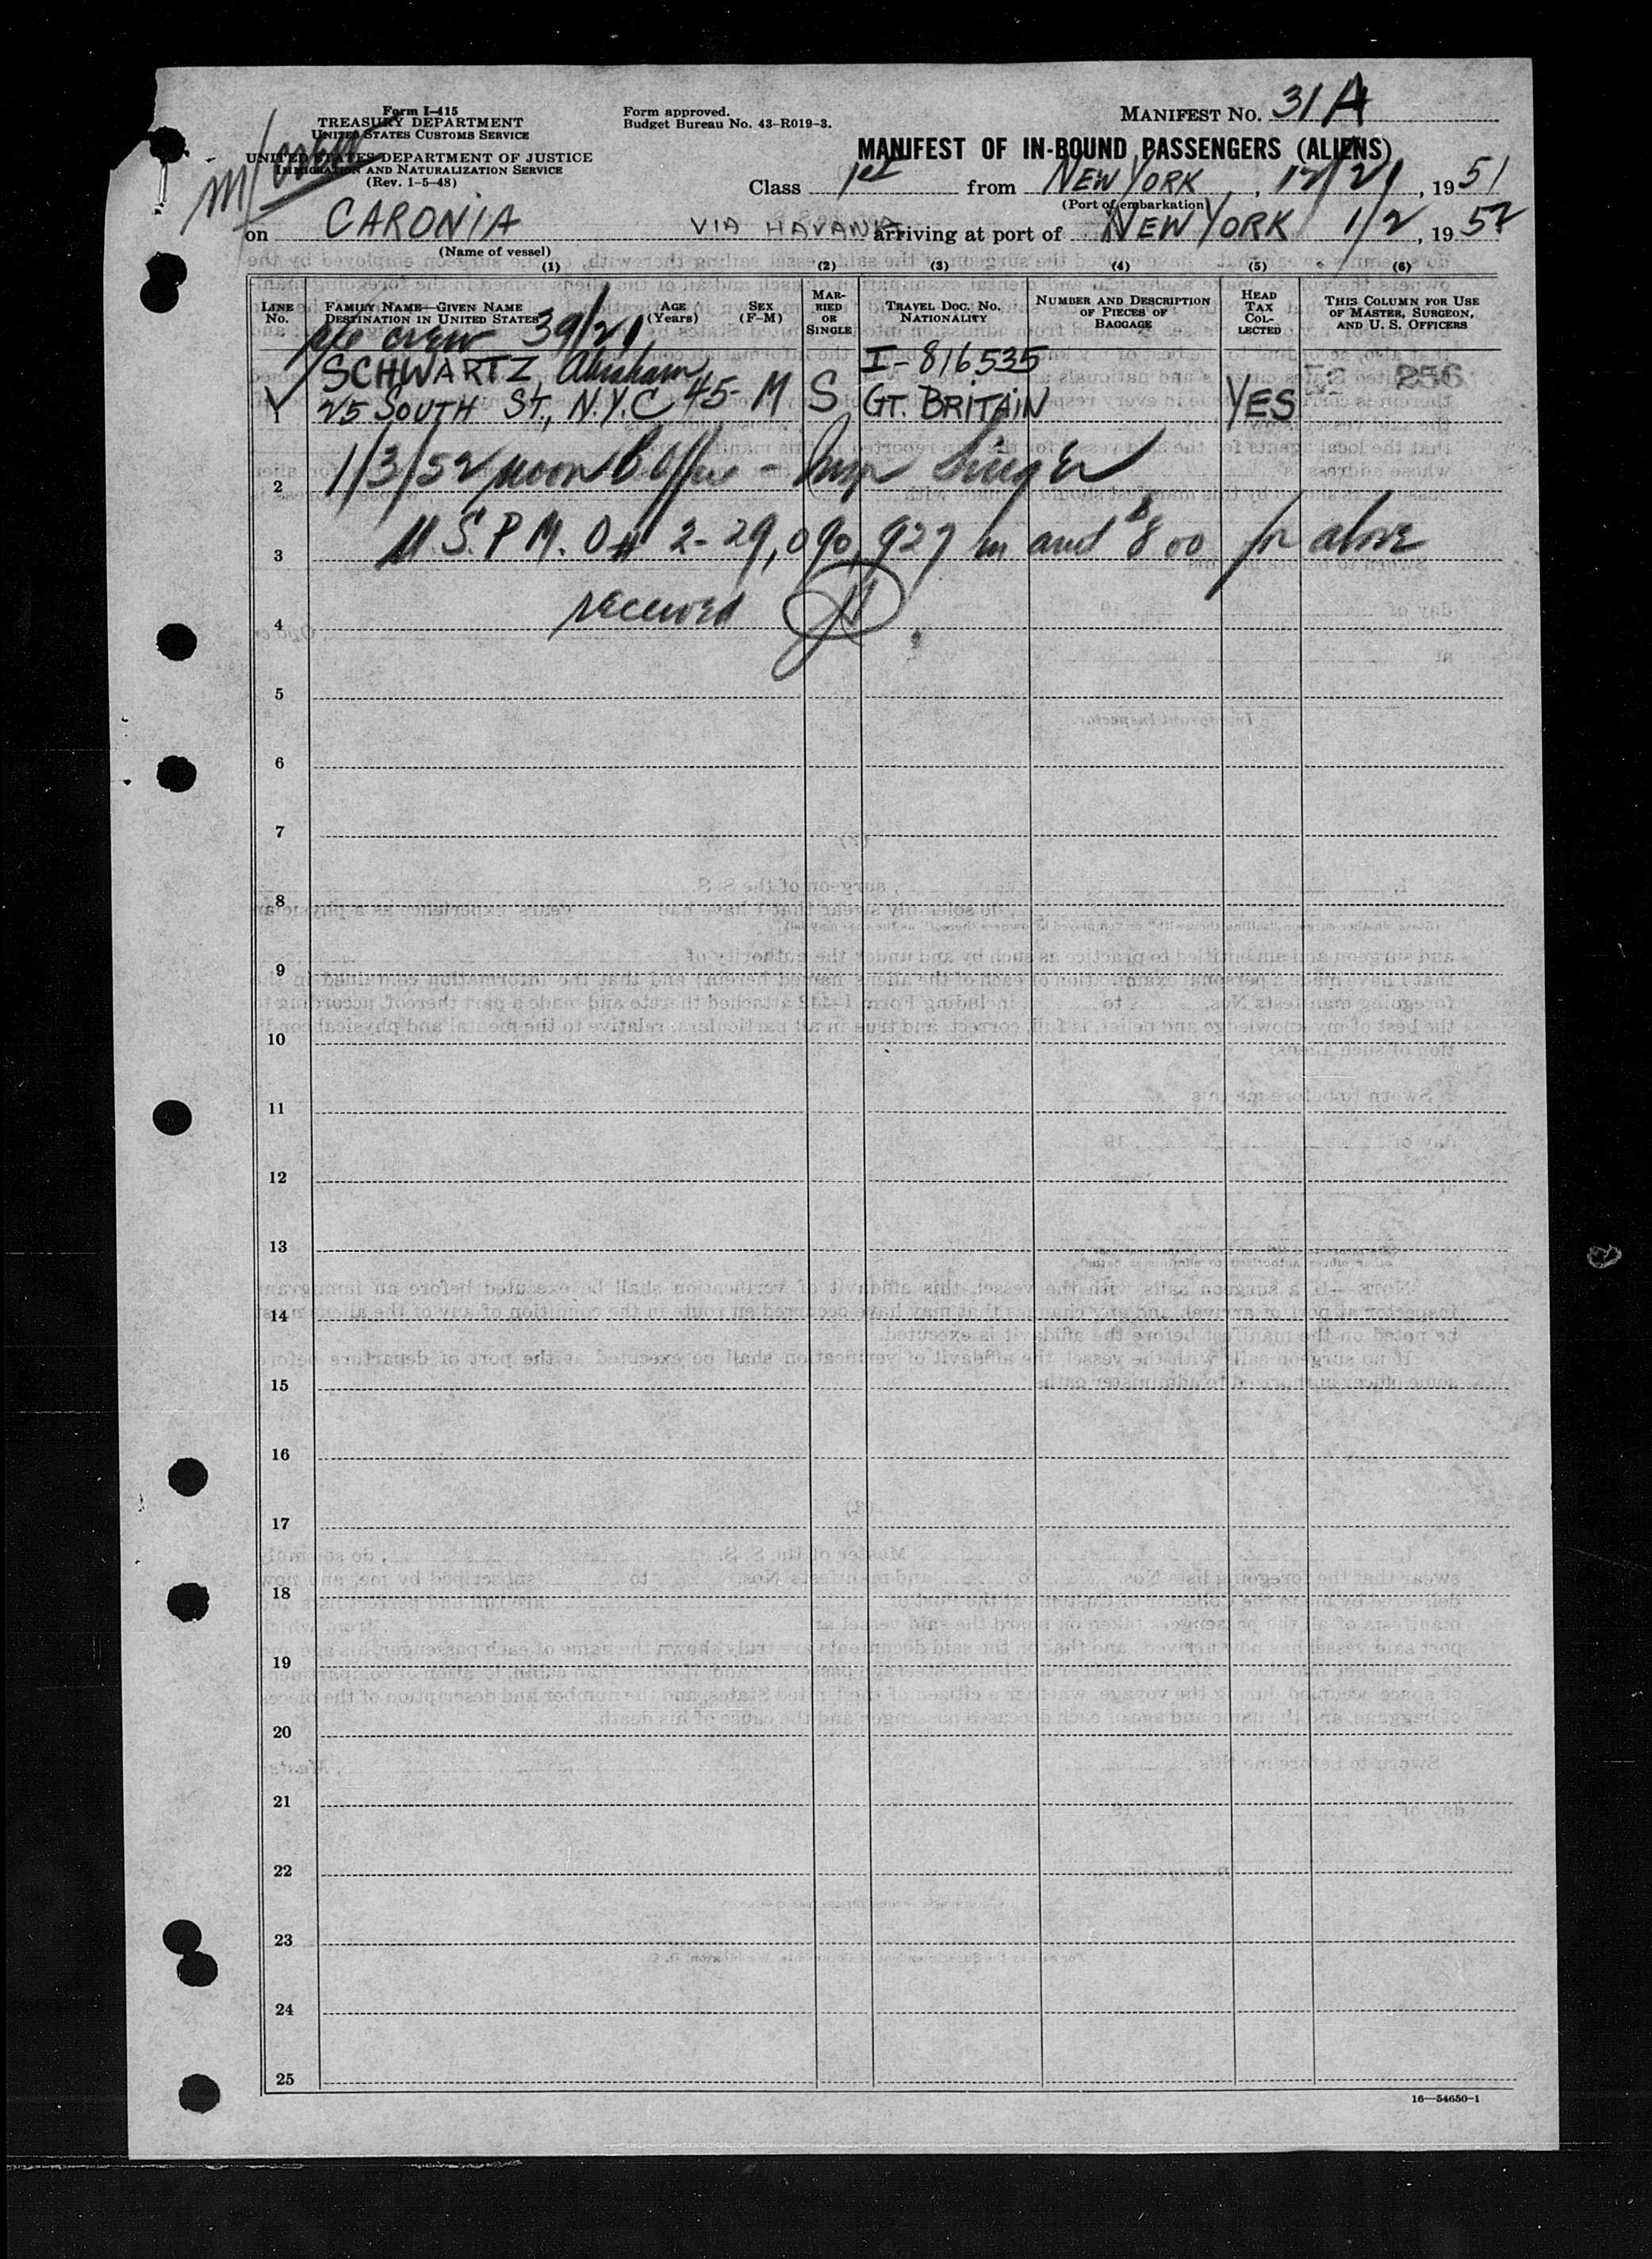 Form I-415
TREASURY DEPARTMENT
UNITED STATES CUSTOMS SERVICE
UNITED STATES DEPARTMENT OF JUSTICE
IMMIGRATION AND NATURALIZATION SERVICE
(Rev. 1-5-48)
Form approved.
Budget Bureau No. 43-R019-3.
MANIFEST NO. 31A
MANIFEST OF IN-BOUND PASSENGERS (ALIENS)
Class 1st from NEW YORK, 12/21, 1951
(Port of embarkation)
on CARONIA VIA HAVANA arriving at port of NEW YORK 1/2, 1952
(Name of vessel)
(1) (2) (3) (4) (5) (6)
LINE No.
FAMILY NAME—GIVEN NAME
DESTINATION IN UNITED STATES
AGE (Years)
SEX (F-M)
MARRIED OR SINGLE
TRAVEL DOC. NO.
NATIONALITY
NUMBER AND DESCRIPTION OF PIECES OF BAGGAGE
HEAD TAX COLLECTED
THIS COLUMN FOR USE OF MASTER, SURGEON, AND U. S. OFFICERS
crew 39/21
SCHWARTZ, Abraham I-816535 256
1 25 SOUTH ST., N.Y.C 45- M S GT. BRITAIN YES
2 1/3/52 noon B. Office - Insp
3 U.S.P.M.O # 2-29,090,927 in amt $8 00 for above
4 received
5
6
7
8
9
10
11
12
13
14
15
16
17
18
19
20
21
22
23
24
25
16—54650-1